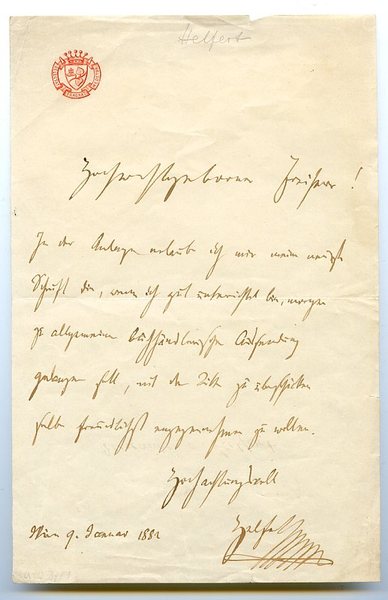 Helfert
Hochwohlgeborner Freiherr!
In der Anlage erlaube ich mir meine neueste
Schrift die, wenn ich gut unterrichtet bin, morgen
zu allgemeiner buchhändlerischer Aussendung
gelangen soll, mit der Bitte zu überschicken
selbe freundlichst entgegennehmen zu wollen.
Hochachtungsvoll
Wien 9. Januar 1882
Helfert